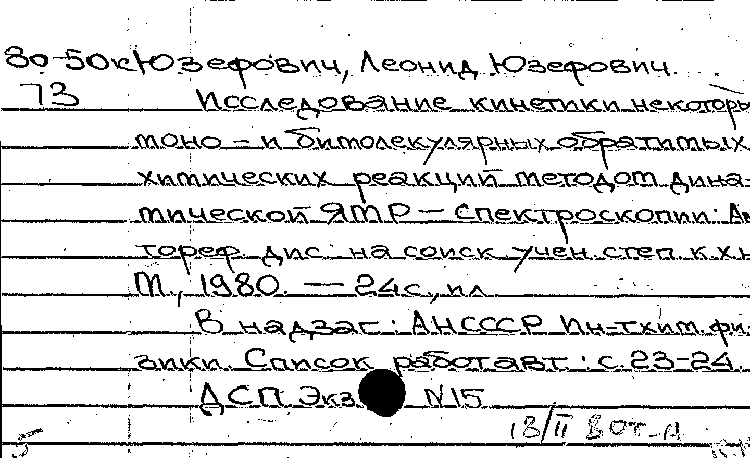 80-50к Юзефович, Леонид Юзефович.
73 Исследование кинетики некоторы
моно- и бимолекулярных обратимых
химических реакций методом дина-
мической ЯМР-спектроскопии: Ав
тореф дис. на соиск учен. степ. к.х.н
М., 1980. — 24с., ил
В надзаг: АН СССР Ин-т хим. фи-
зики. Список работ авт: с. 23-24.
ДСП. Экз N15
18/II
5